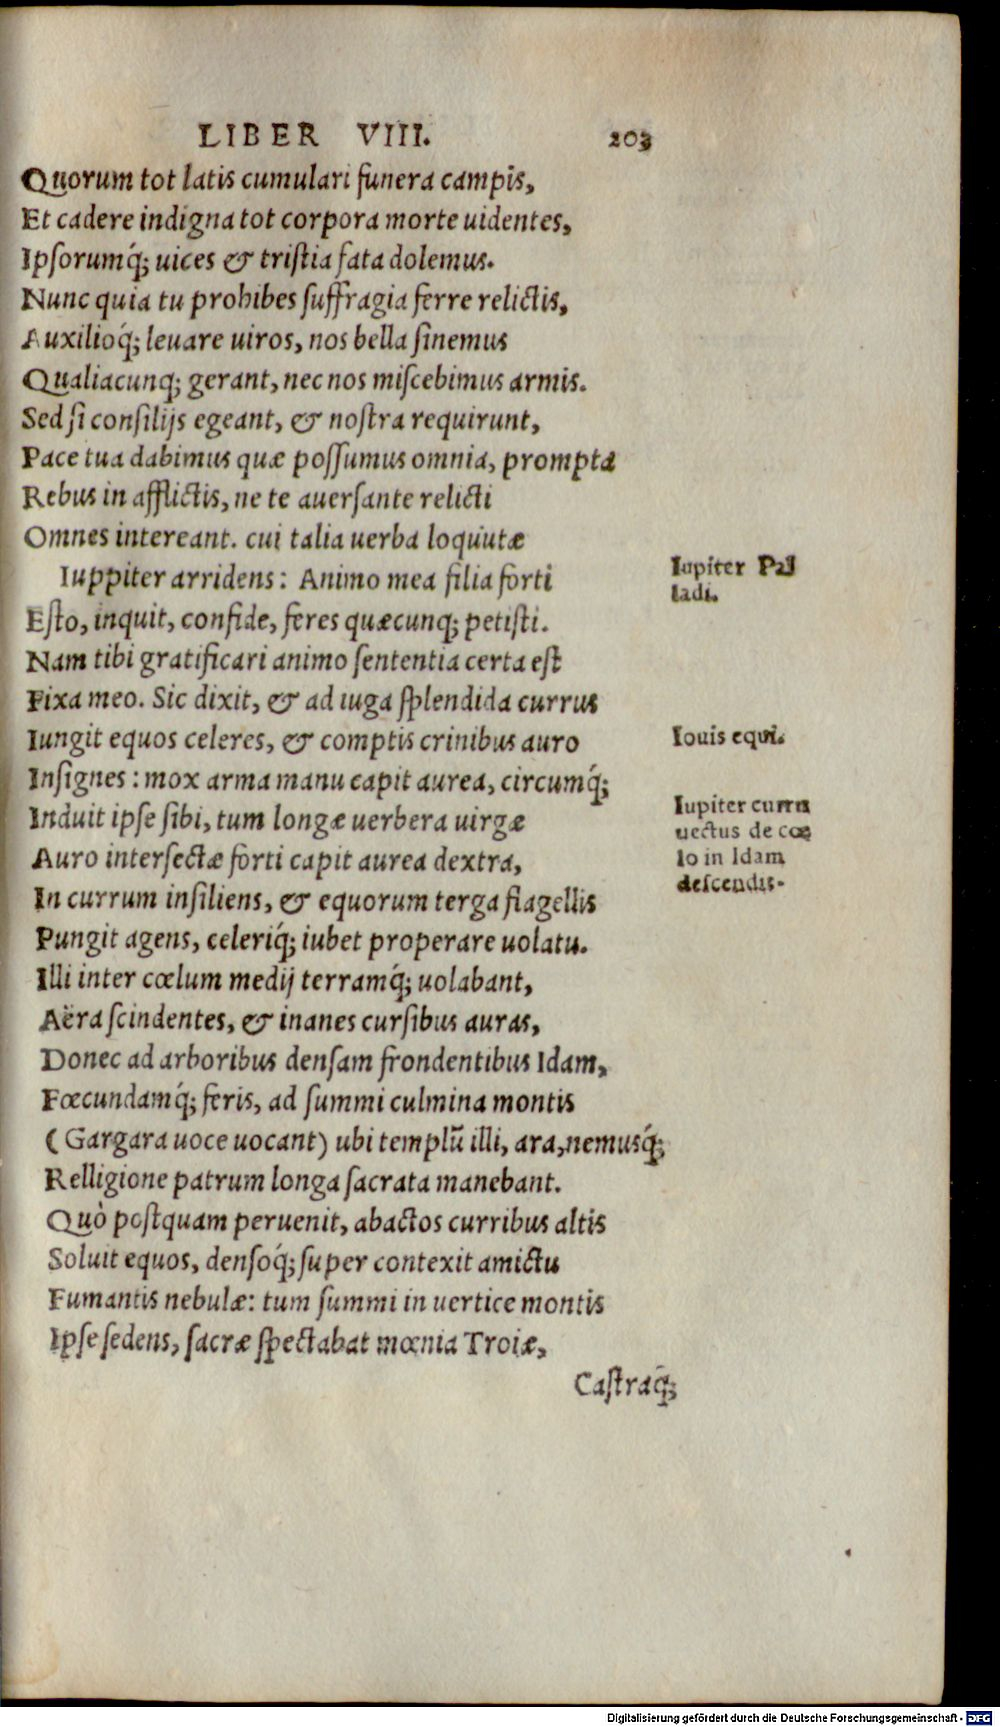 LIBER VIII. 203
Quorum tot latis cumulari funera campis,
Et cadere indigna tot corpora morte uidentes,
Ipſorumq́; uices & triſtia fata dolemus.
Nunc quia tu prohibes ſuffragia ferre relictis,
Auxilioq́; leuare uiros, nos bella ſinemus
Qualiacunq; gerant, nec nos miſcebimus armis.
Sed ſi conſilijs egeant, & noſtra requirunt,
Pace tua dabimus quæ poſſumus omnia, prompta
Rebus in afflictis, ne te auerſante relicti
Omnes intereant. cui talia uerba loquutæ
Iuppiter arridens: Animo mea filia forti
Iupiter Pal
ladi.
Eſto, inquit, confide, feres quæcunq; petiſti.
Nam tibi gratificari animo ſententia certa eſt
Fixa meo. Sic dixit, & ad iuga ſplendida currus
Iungit equos celeres, & comptis crinibus auro
Iouis equi.
Inſignes: mox arma manu capit aurea, circumq́;
Induit ipſe ſibi, tum longæ uerbera uirgæ
Auro interſectæ forti capit aurea dextra,
Iupiter curru
uectus de cœ
lo in Idam
deſcendit.
In currum inſiliens, & equorum terga flagellis
Pungit agens, celeriq́; iubet properare uolatu.
Illi inter cœlum medij terramq́; uolabant,
Aëra ſcindentes, & inanes curſibus auras,
Donec ad arboribus denſam frondentibus Idam,
Fœcundamq́; feris, ad ſummi culmina montis
(Gargara uoce uocant) ubi templū illi, ara, nemusq́;
Relligione patrum longa ſacrata manebant.
Quò poſtquam peruenit, abactos curribus altis
Soluit equos, denſoq́; ſuper contexit amictu
Fumantis nebulæ: tum ſummi in uertice montis
Ipſe ſedens, ſacræ ſpectabat mœnia Troiæ,
Caſtraq́;
Digitalisierung gefördert durch die Deutsche Forschungsgemeinschaft - DFG